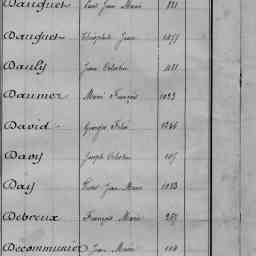 Dauguet Jean Marie 821
Dauguet Théophile Jean 1077
Dauly Jean Célestin
Daumer Marie François 1093
David Georges Félix 1246
Davy Joseph Célestin 107
Day Jean Marie 1033
Debreux François Marie 257
Decommunier Jean Marie 114